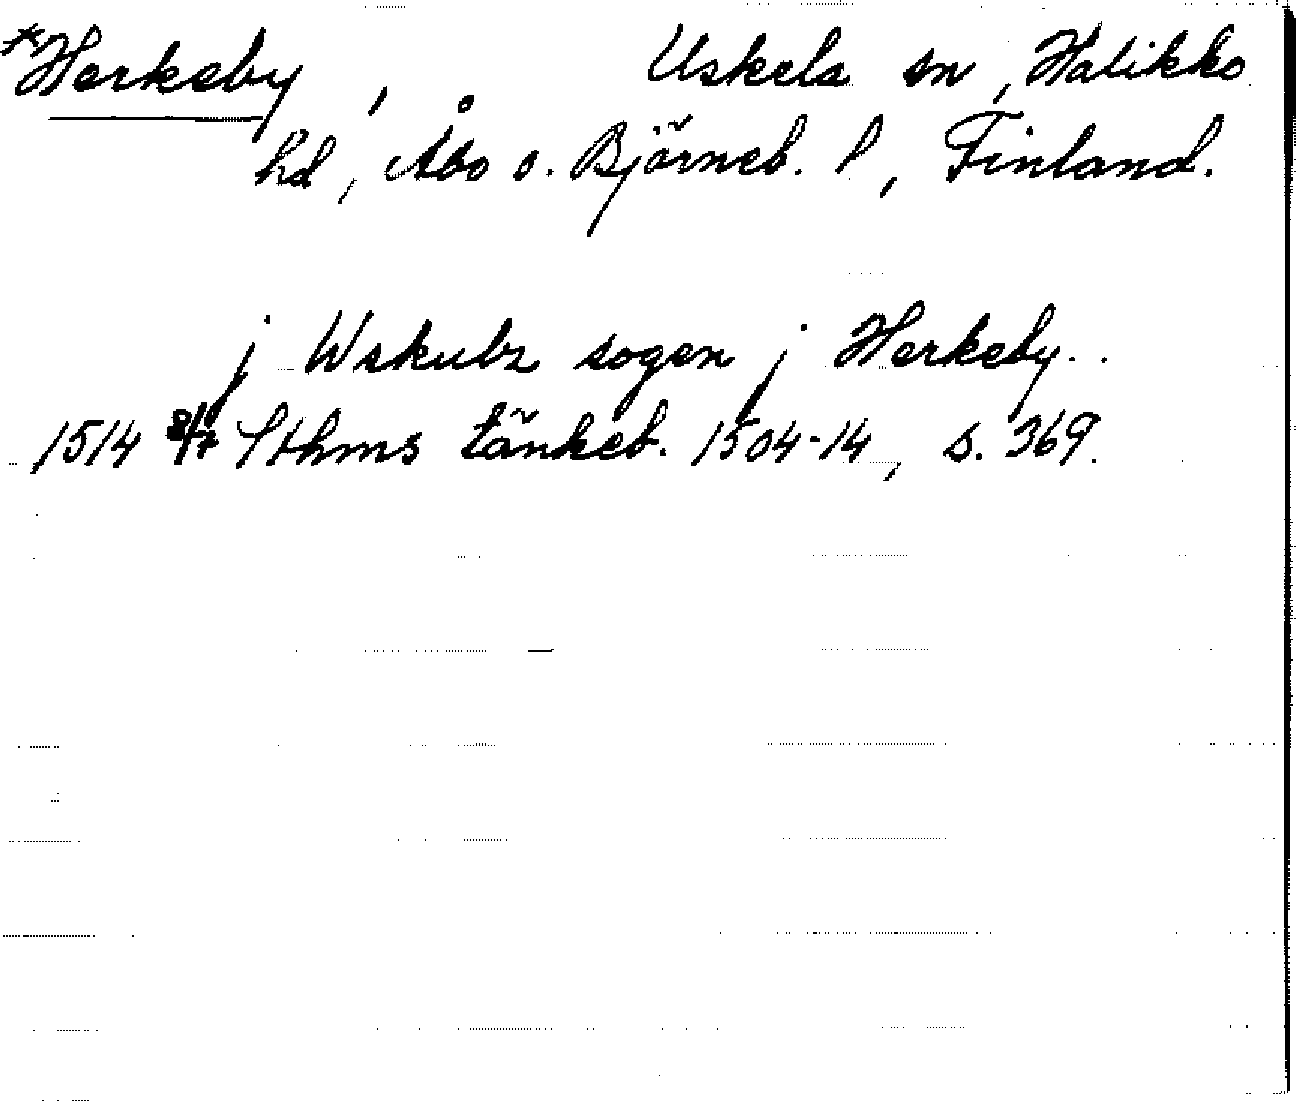 *Herkeby, Uskela sn, Halikko
hd, Åbo o. Björneb. l, Finland.
j Wskulz sogen j Herkeby..
1514 8/7 Sthms tänkeb. 1504-14, s. 369.